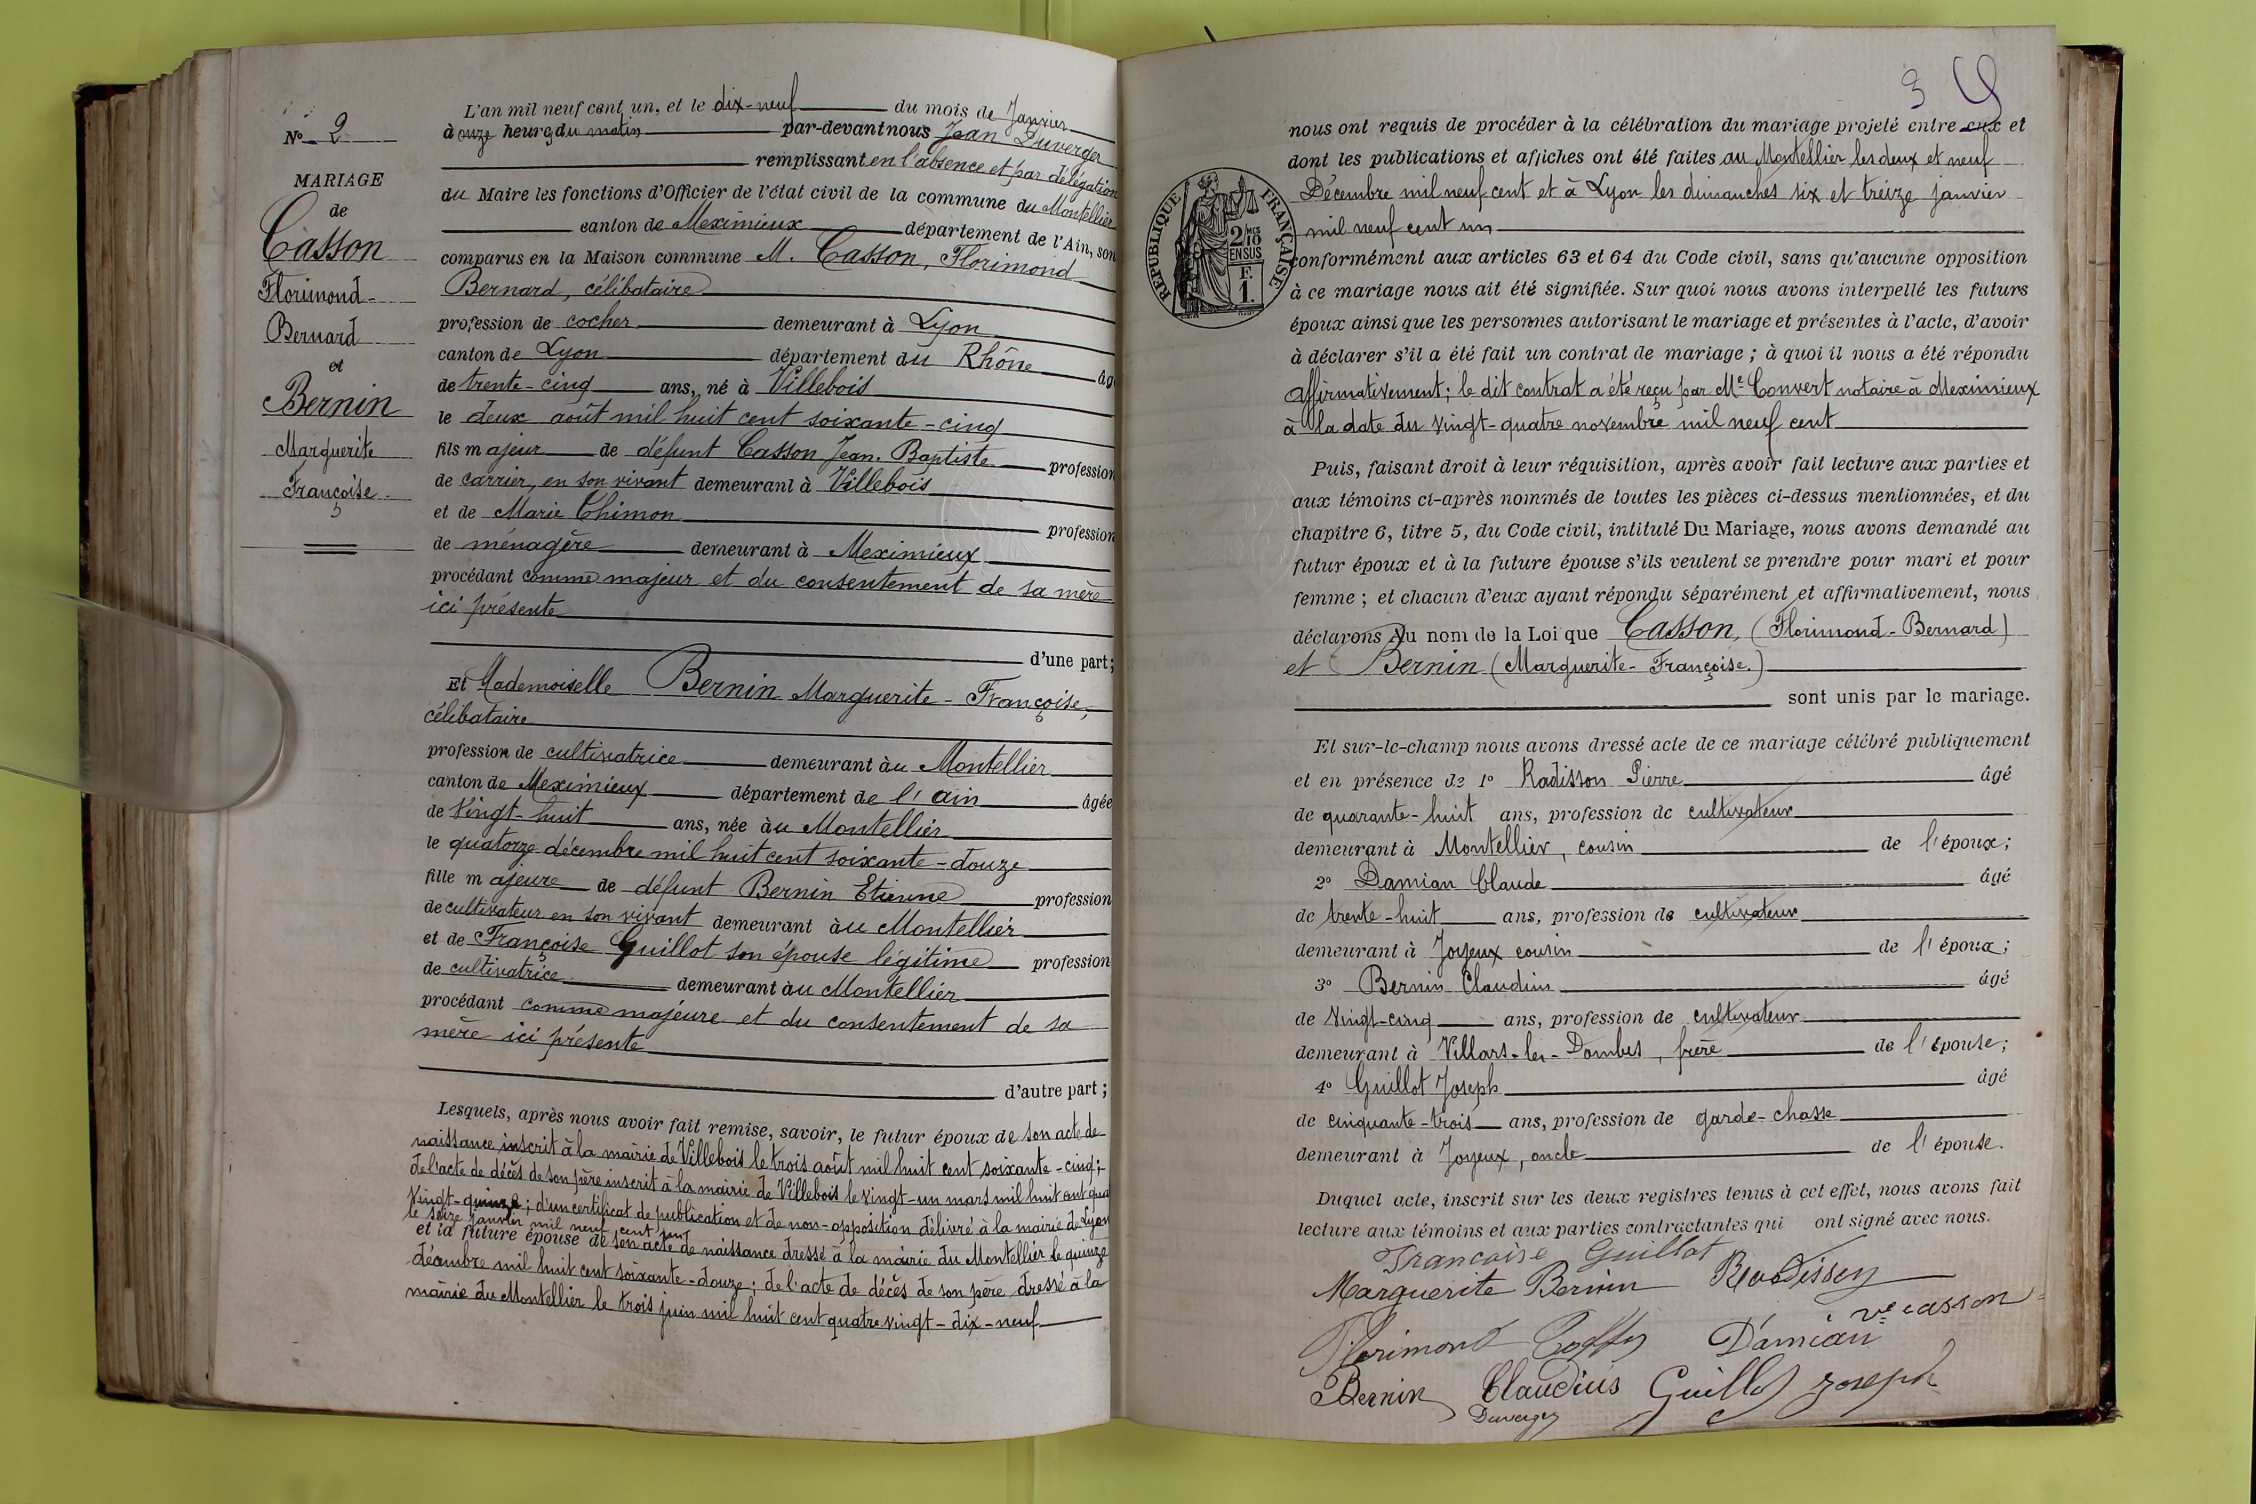 N° 2
MARIAGE
de
Casson
Florimond
Bernard
et
Bernin
Marguerite
Françoise
L'an mil neuf cent un, et le dix-neuf du mois de Janvier
à onze heures du matin par-devant nous Jean Duverger
remplissant en l'absence et par délégation
du Maire les fonctions d'Officier de l'état civil de la commune du Montellier
canton de Meximieux département de l'Ain, sont
comparus en la Maison commune M. Casson, Florimond
Bernard, célibataire
profession de cocher demeurant à Lyon
canton de Lyon département du Rhône âgé
de trente-cinq ans, né à Villebois
le deux août mil huit cent soixante-cinq
fils majeur de défunt Casson Jean-Baptiste profession
de carrier, en son vivant demeurant à Villebois
et de Marie Chimon profession
de ménagère demeurant à Meximieux
procédant comme majeur et du consentement de sa mère
ici présente
d'une part;
Et Mademoiselle Bernin Marguerite-Françoise,
célibataire
profession de cultivatrice demeurant àu Montellier
canton de Meximieux département de l'ain âgée
de vingt-huit ans, née àu Montellier
le quatorze décembre mil huit cent soixante-douze
fille majeure de défunt Bernin Etienne profession
de cultivateur en son vivant demeurant àu Montellier
et de Françoise Guillot son épouse légitime profession
de cultivatrice demeurant àu Montellier
procédant comme majeure et du consentement de sa
mère ici présente
d'autre part;
Lesquels, après nous avoir fait remise, savoir, le futur époux de son acte de
naissance inscrit à la mairie de Villebois le trois août mil huit cent soixante-cinq;
de l'acte de décès de son père inscrit à la mairie de Villebois le vingt-un mars mil huit cent quatre
vingt-quinze; d'un certificat de publication et de non-opposition délivré à la mairie de Lyon
le seize janvier mil neuf cent un
et la future épouse de son acte de naissance dressé à la mairie du Montellier le quinze
décembre mil huit cent soixante-douze; de l'acte de décès de son père dressé à la
mairie du Montellier le trois juin mil huit cent quatre vingt-dix-neuf
3
nous ont requis de procéder à la célébration du mariage projeté entre eux et
dont les publications et affiches ont été faites au Montellier les deux et neuf
Décembre mil neuf cent et à Lyon les dimanches six et treize janvier
mil neuf cent un
RÉPUBLIQUE FRANÇAISE
2/10
EN SUS
F.
1.
conformément aux articles 63 et 64 du Code civil, sans qu'aucune opposition
à ce mariage nous ait été signifiée. Sur quoi nous avons interpellé les futurs
époux ainsi que les personnes autorisant le mariage et présentes à l'acte, d'avoir
à déclarer s'il a été fait un contrat de mariage; à quoi il nous a été répondu
affirmativement; le dit contrat a été reçu par Me Convert notaire à Meximieux
à la date du vingt-quatre novembre mil neuf cent
Puis, faisant droit à leur réquisition, après avoir fait lecture aux parties et
aux témoins ci-après nommés de toutes les pièces ci-dessus mentionnées, et du
chapitre 6, titre 5, du Code civil, intitulé Du Mariage, nous avons demandé au
futur époux et à la future épouse s'ils veulent se prendre pour mari et pour
femme; et chacun d'eux ayant répondu séparément et affirmativement, nous
déclarons Au nom de la Loi que Casson, (Florimond-Bernard)
et Bernin (Marguerite-Françoise.)
sont unis par le mariage.
Et sur-le-champ nous avons dressé acte de ce mariage célébré publiquement
et en présence de 1° Radisson Pierre âgé
de quarante-huit ans, profession de cultivateur
demeurant à Montellier, cousin de l'époux;
2° Damian Claude âgé
de trente-huit ans, profession de cultivateur
demeurant à Joyeux cousin de l'époux;
3° Bernin Claudius âgé
de vingt-cinq ans, profession de cultivateur
demeurant à Villars-les-Dombes, frère de l'épouse;
4° Guillot Joseph âgé
de cinquante-trois ans, profession de garde-chasse
demeurant à Joyeux, oncle de l'épouse.
Duquel acte, inscrit sur les deux registres tenus à cet effet, nous avons fait
lecture aux témoins et aux parties contractantes qui ont signé avec nous.
Francoise Guillot
Marguerite Bernin Radisson
Ve casson
Florimond Damian
Bernin Claudius Guillot Joseph
Duverger